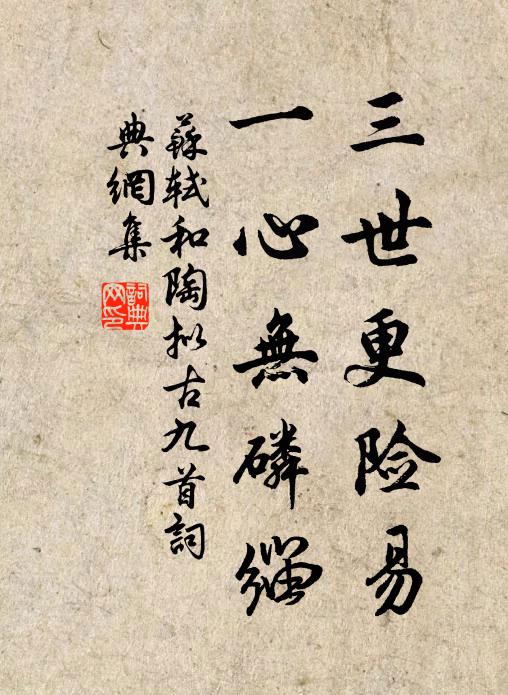 三世更险易
一心無磷缁
蘇軾和陶拟古九首詞
典網集
詞典
网印